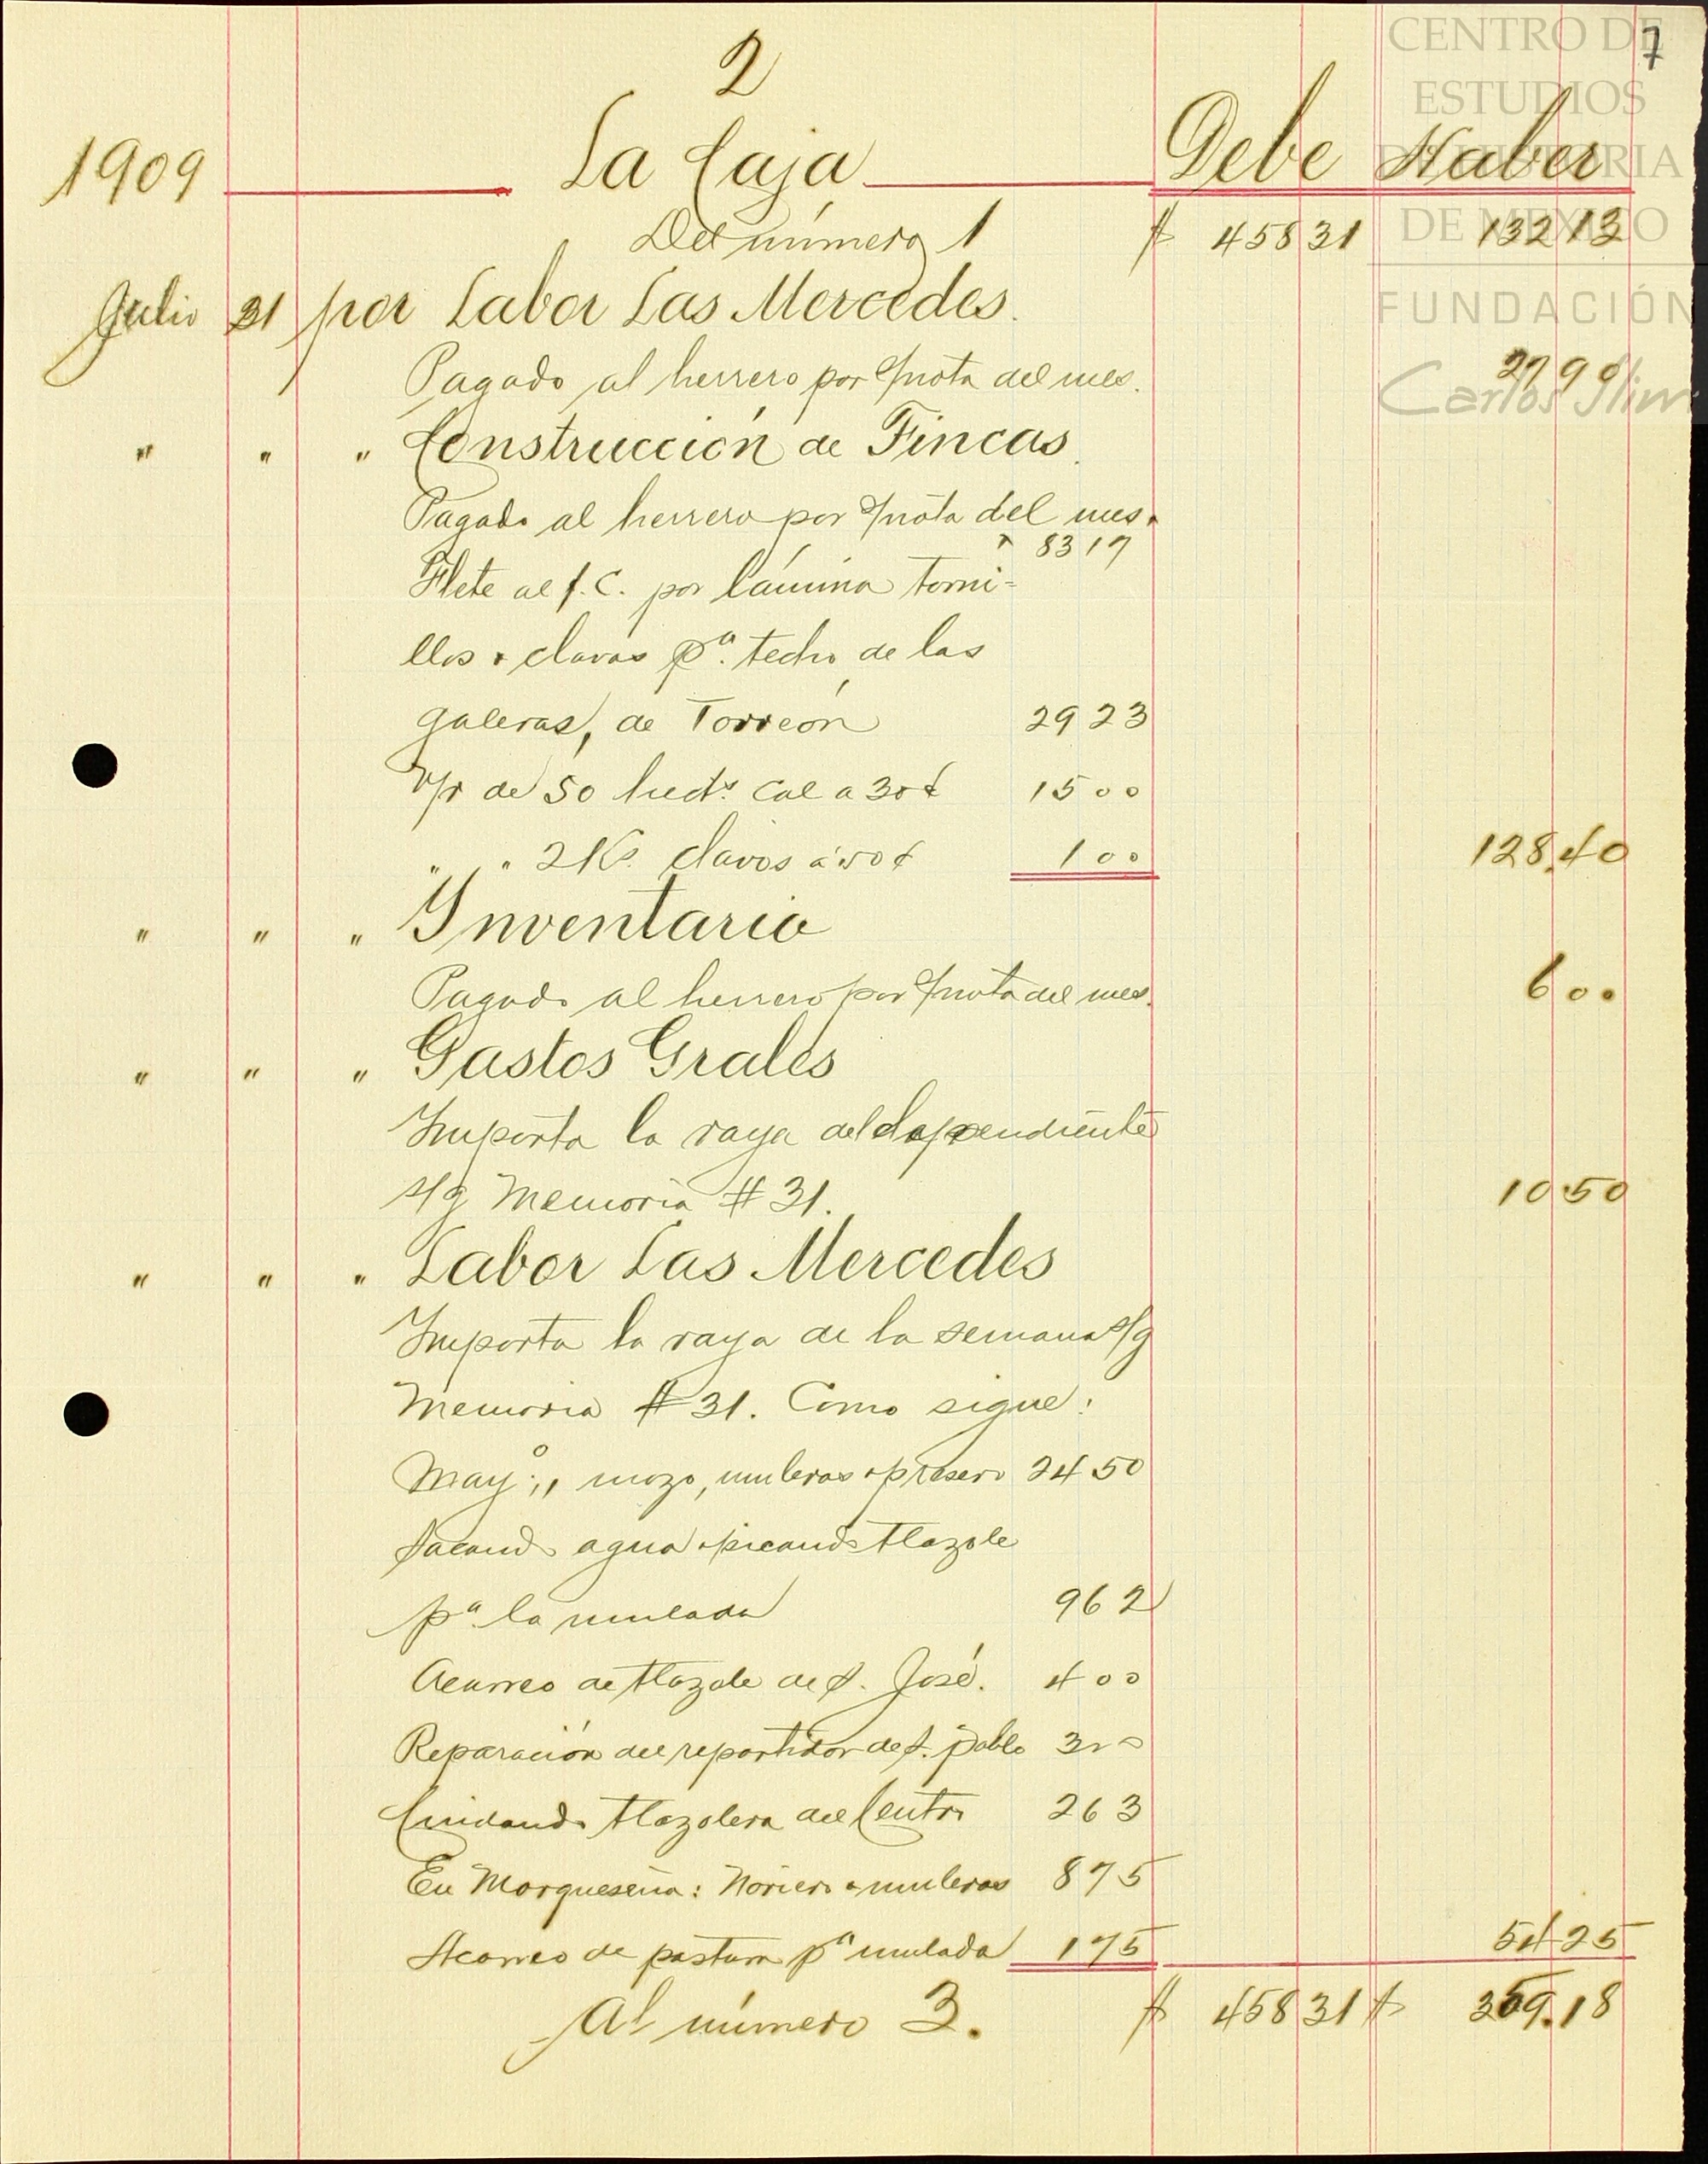 2
7
CENTRO DE
ESTUDIOS
DE HISTORIA
DE MEXICO
FUNDACIÓN
Carlos Slim
1909 La Caja Debe Haber
Del número 1 $ 458 31 132 13
Julio 31 por Labor Las Mercedes.
Pagado al herrero por s/nota del mes. 27 90
" " " Construcción de Fincas.
Pagado al herrero por s/nota del mes.
" 83 17
Flete al f. C. por lámina torni=
llos & clavos pa. techo de las
galeras, de Torreón 29 23
V/r de 50 hects. cal a 30 ¢ 15 00
" " 2 Ks. clavos á 50 ¢ 1 00 128.40
" " " Inventario
Pagado al herrero por s/nota del mes. 6 00
" " " Gastos Grales
Importa la raya del dependiente
s/g Memoria # 31. 10 50
" " " Labor Las Mercedes
Importa la raya de la semana s/g
Memoria # 31. Como sigue:
May.o,, mozo, muleros & presero 24 50
Sacando agua & picando tlazole
pa la mulada 9 62
Acarreo de tlazole de S. José. 4 00
Reparación del repartidor de S. Pablo 3 00
Cuidando tlazolera del Centro 2 63
En Morqueseña: Noriero & muleros 8 75
Acarreo de pastura pa mulada 1 75 54 25
Al número 3. $ 458 31 $ 359.18